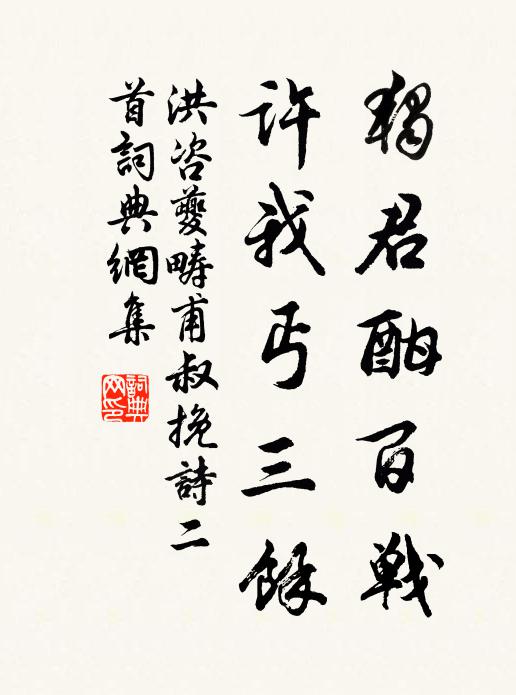 獨君酣百戰
許我丐三餘
洪咨夔疇甫叔挽詩二
首詞典網集
詞典
网印